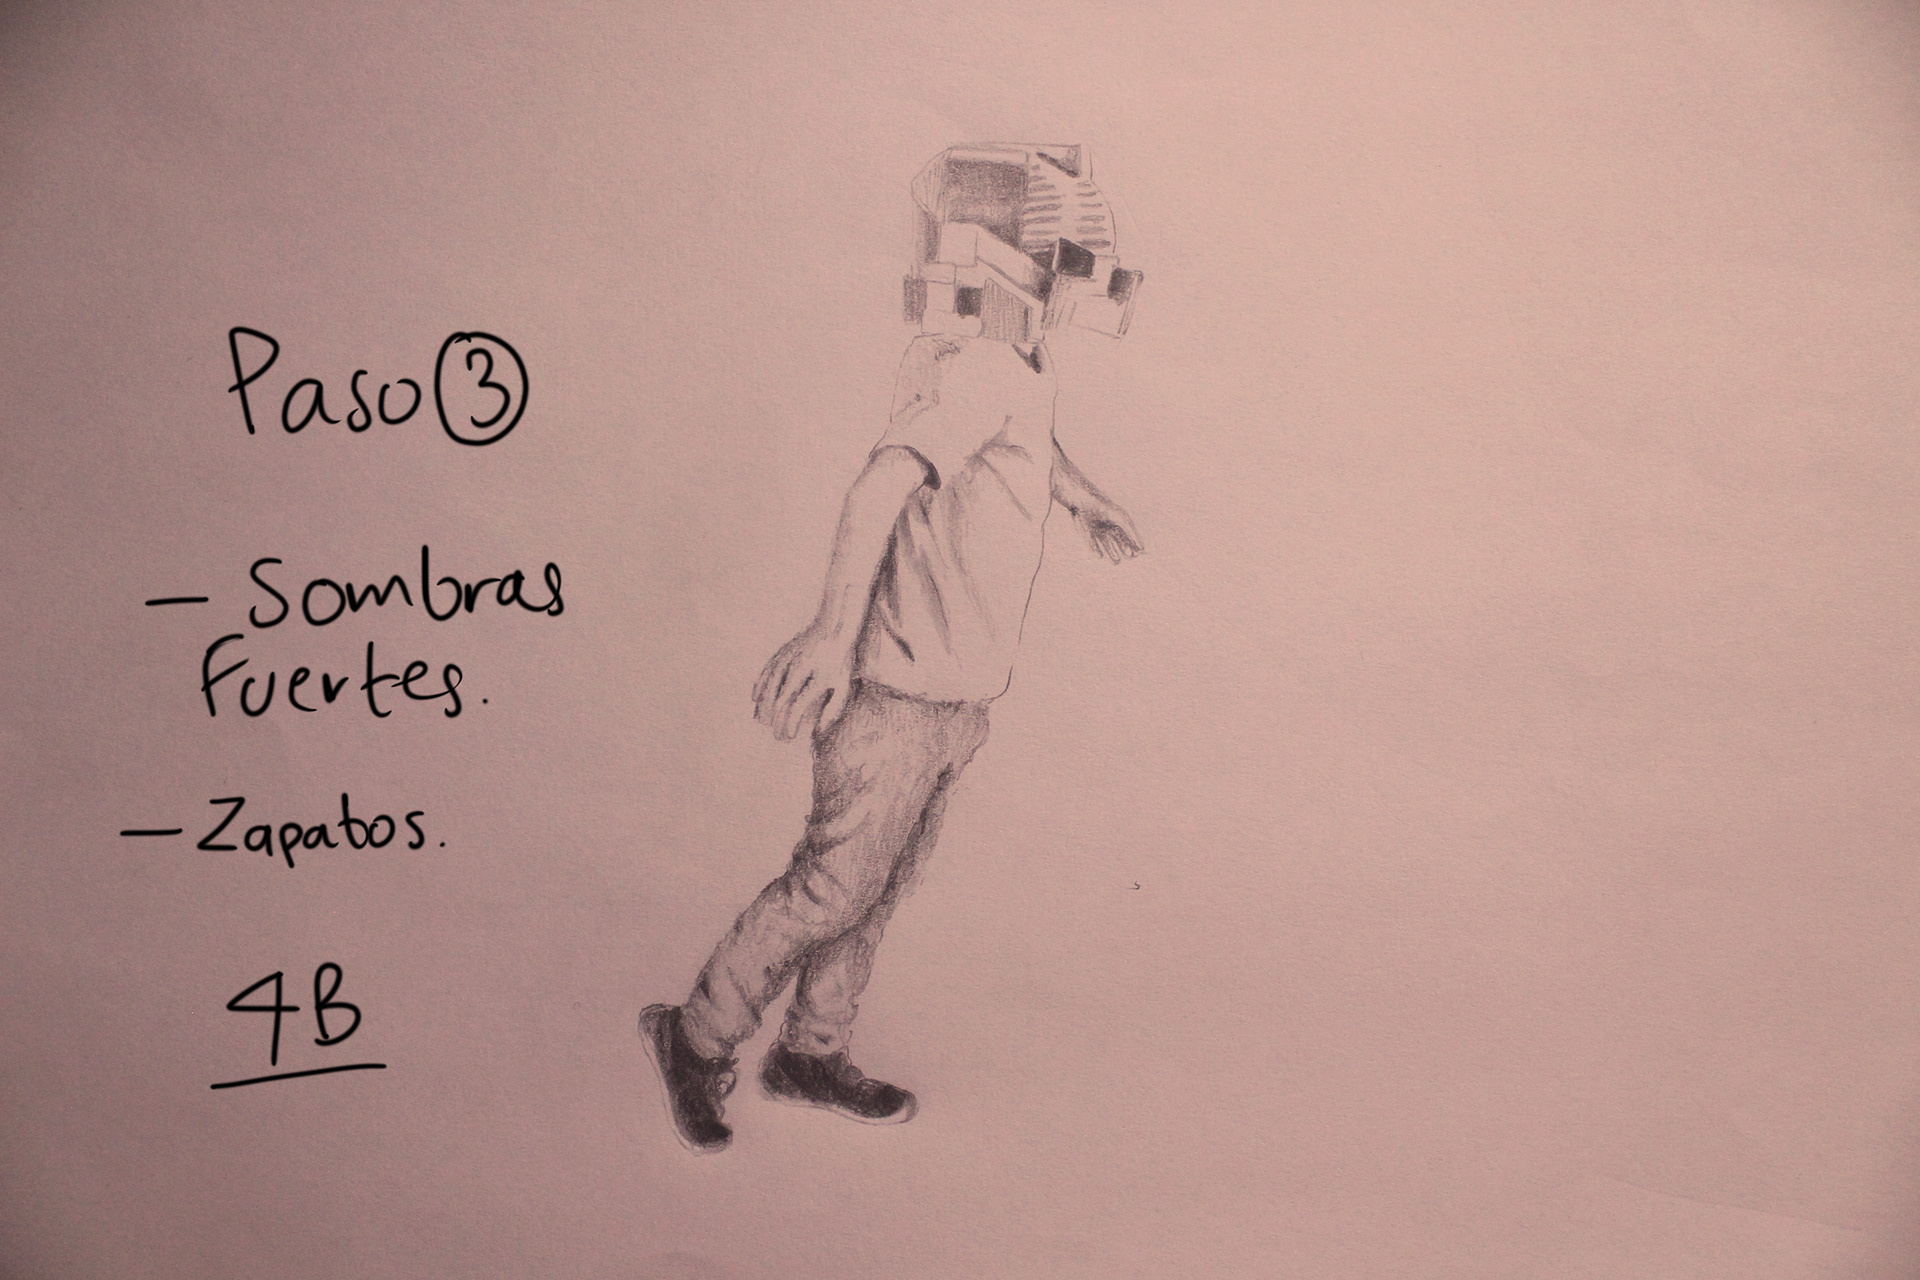 Paso ③
- Sombras
Fuertes.
- Zapatos.
4B